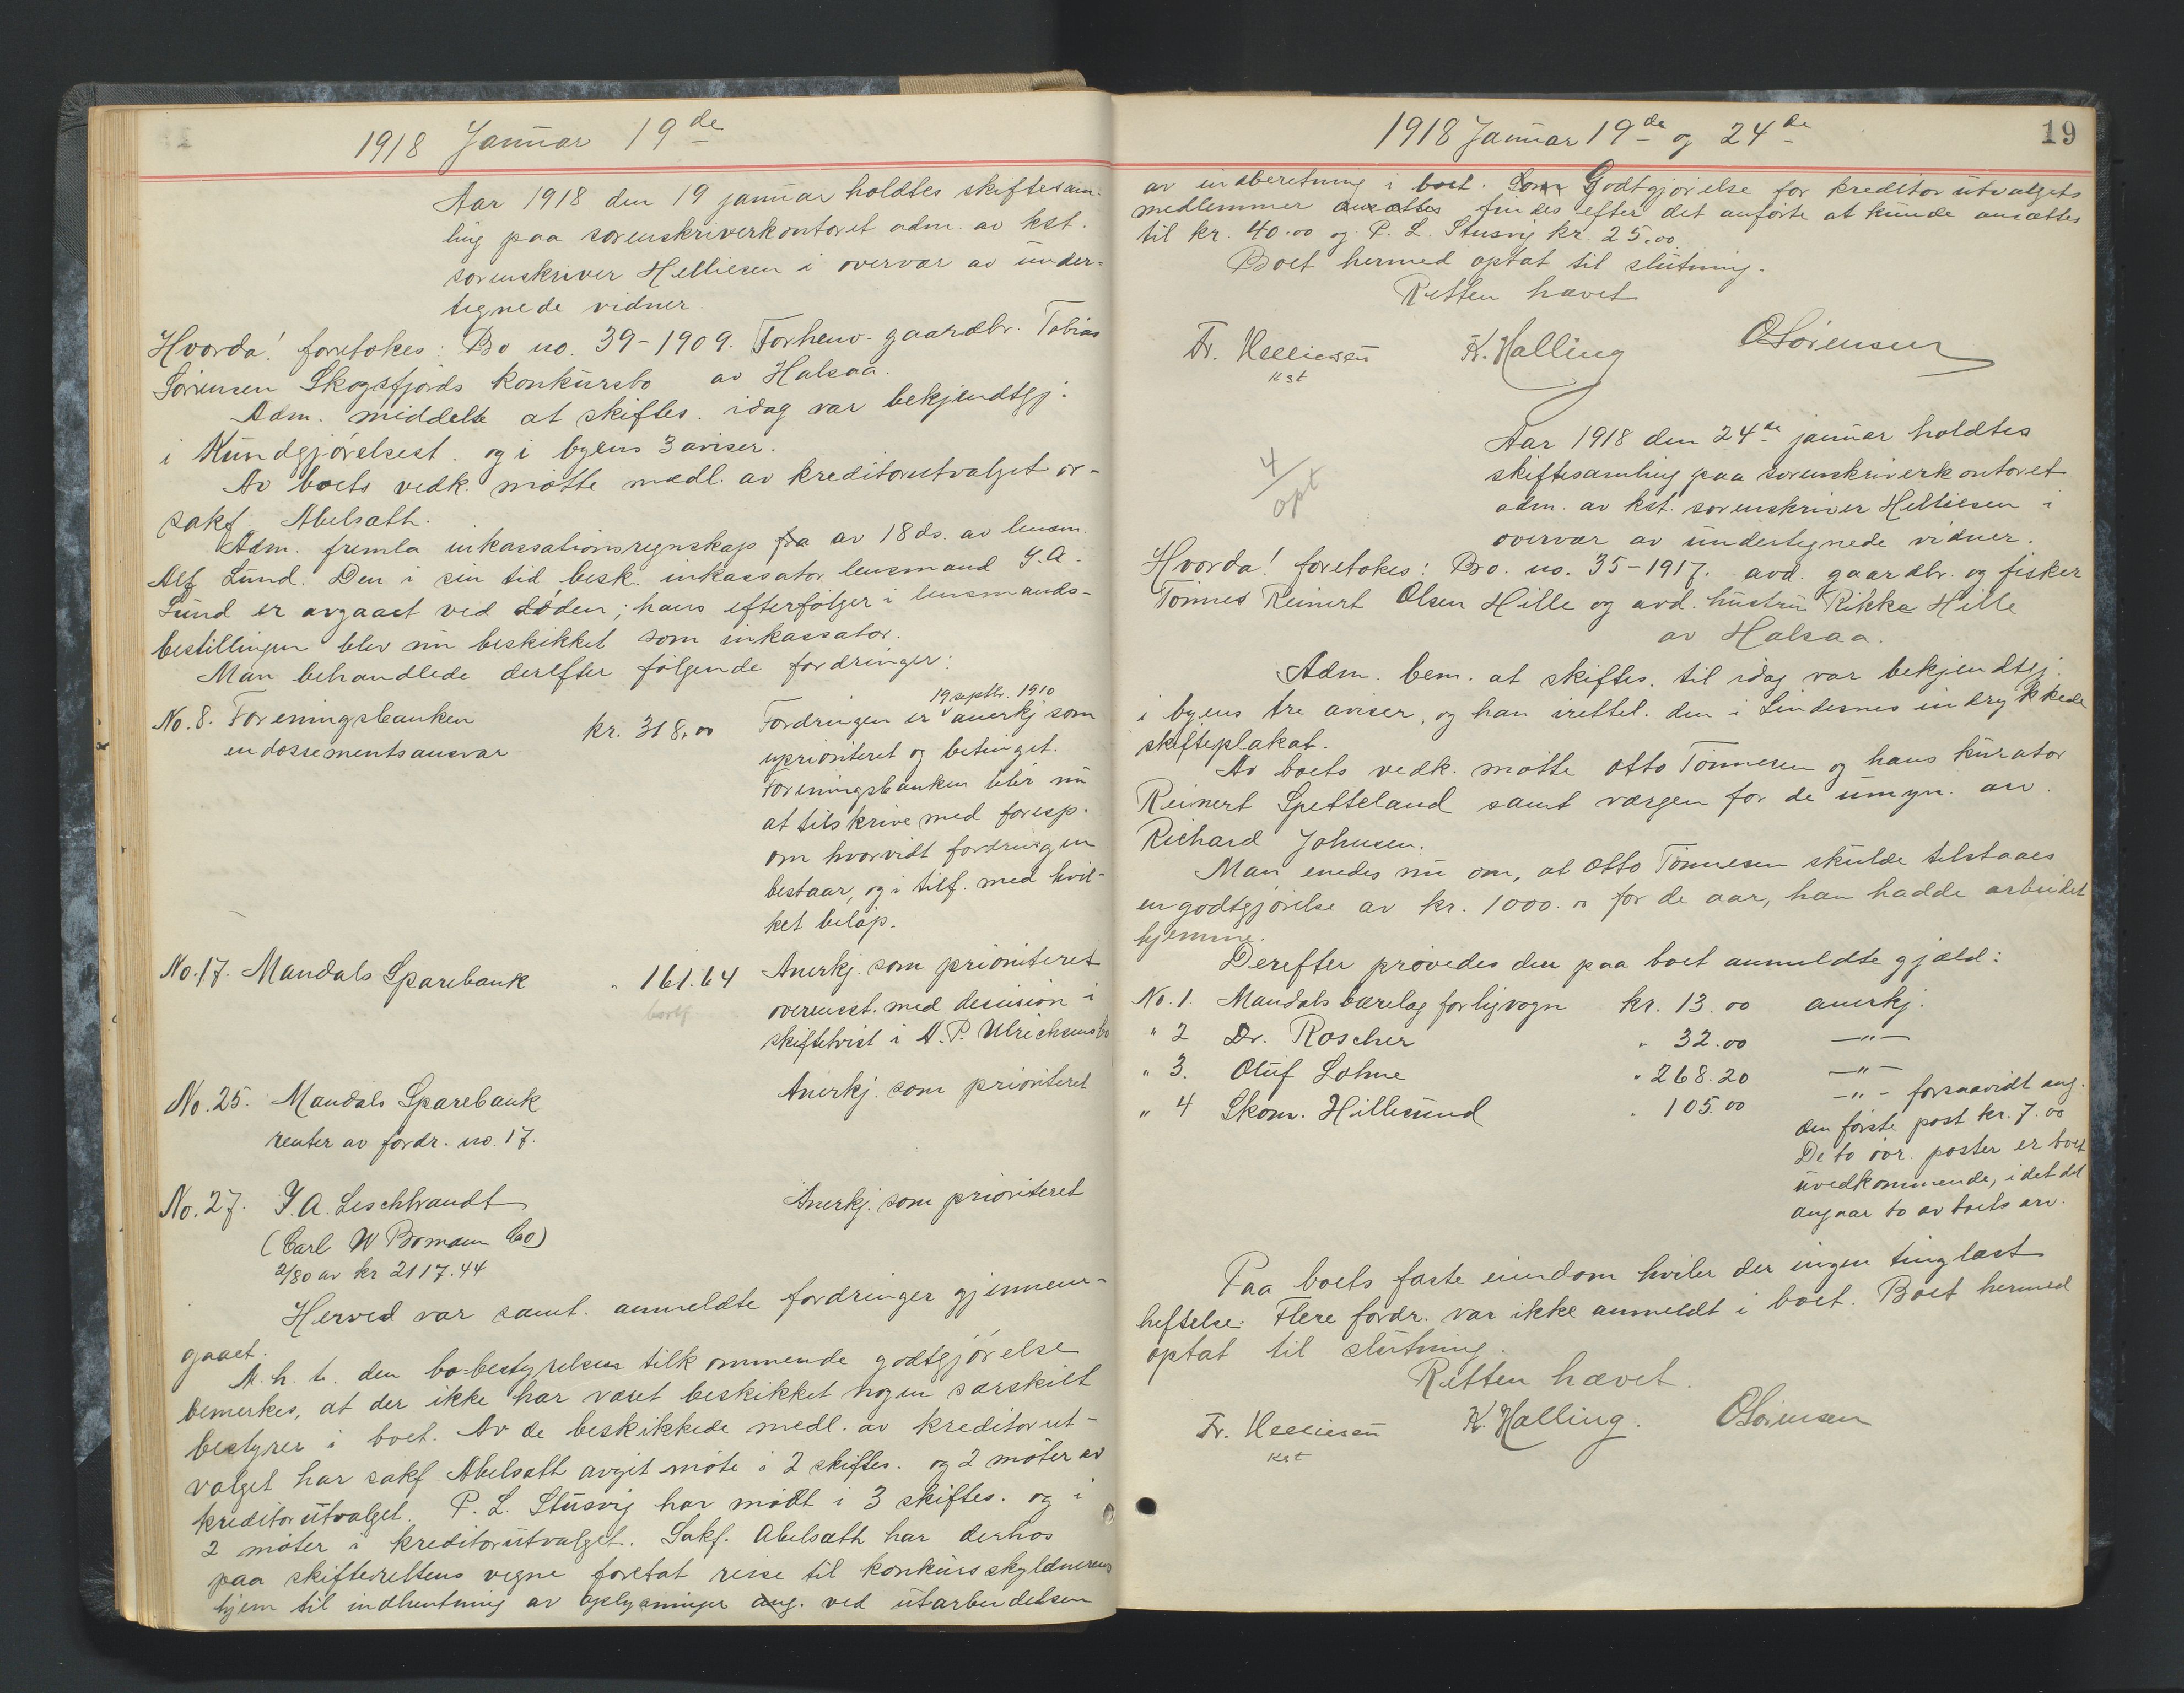 1918 Januar 19de
Aar 1918 den 19 januar holdtes skiftesam-
ling paa sorenskriverkontoret adm. av kst.
sorenskriver Helliesen i overvær av under-
tegnede vidner.
Hvorda! foretokes: Bo no. 39-1909. Forhenv. gaardbr. Tobias
Sörensen Skogsfjords konkursbo av Halsaa.
Adm. middelte at skiftes. idag var bekjendtgj.
i Kundgjörelsest. og i byens 3 aviser.
Av boets vedk. mötte medl. av kreditorutvalget or-
sakf. Abelsæth.
Adm. fremla inkassationsregnskap fra av 18 ds. av lensm.
Alf Lund. Den i sin tid besk. inkassator lensmand J. A.
Lund er avgaaet ved döden; hans efterfölger i lensmands-
bestillingen blev nu beskikket som inkassator.
Man behandlede derefter fölgende fordringer:
19 septbr. 1910
No. 8. Foreningsbanken kr. 318.00 Fordringen er anerkj som
endossementsansvar uprioriteret og betinget.
Foreningsbanken blir nu
at tilskrive med foresp.
om hvorvidt fordringen
bestaar, og i tilf. med hvil-
ket belöp.
No. 17. Mandals Sparebank " 161.64 Anerkj. som prioriteret
overensst. med decision i
skiftetvist i A. P. Ulrichsens bo
No. 25. Mandals Sparebank Anerkj. som prioriteret
renter av fordr. no. 17.
No. 27. J. A. Leschbrandt Anerkj. som prioriteret
(Carl W Boman Co)
2/80 av kr 2117.44
Herved var samt. anmeldte fordringer gjennem-
gaaet.
M. h. t. den bo-bestyrelsen tilkommende godtgjörelse
bemerkes, at der ikke har været beskikket nogen særskilt
bestyrer i boet. Av de beskikkede medl. av kreditorut-
valget har sakf. Abelsæth avgit möte i 2 skiftes. og 2 möter av
kreditorutvalget. P. L. Stusvig har mödt i 3 skiftes. og i
2 möter i kreditorutvalget. Sakf. Abelsæth har derhos
paa skifterettens vegne foretat reise til konkursskyldnerens
hjem til indhentning av oplysninger ang. ved utarbeidelsen
1918 Januar 19de og 24de
19
av indberetning i boet. Som Godtgjörelse for kreditorutvalgets
medlemmer ansættes findes efter det anförte at kunde ansættes
til kr. 40.00 og P. L. Stusvig kr. 25.00
Boet hermed optat til slutning.
Retten hævet
Fr. Helliesen K. Halling OSörensen
kst
4/opt
Aar 1918 den 24de januar holdtes
skiftesamling paa sorenskriverkontoret
adm. av kst. sorenskriver Helliesen i
overvær av undertegnede vidner.
Hvorda! foretokes: Bo. no. 35-1917. avd. gaardbr. og fisker
Tönnes Reinert Olsen Hille og avd. hustru Rikke Hille
av Halsaa.
Adm. bem. at skiftes. til idag var bekjendtgj.
i byens tre aviser, og han irettel. den i Lindesnes indrykkede
skifteplakat.
Av boets vedk. mötte Otto Tönnesen og hans kurator
Reinert Spetteland samt værgen for de umyn. arv.
Richard Johnsen.
Man enedes nu om, at Otto Tönnesen skulde tilstaaes
en godtgjörelse av kr. 1000.00 for de aar, han hadde arbeidet
hjemme.
Derefter prövedes den paa boet anmeldte gjæld:
No. 1. Mandals bærelag for ligvogn kr. 13.00 anerkj.
" 2 Dr. Roscher " 32.00 —"—
" 3. Oluf Lohne " 268.20 —"—
" 4 Skom. Hillesund " 105.00 —"— forsaavidt ang.
den förste post kr. 7.00
De to övr. poster er boet
uvedkommende, idet det
angaar to av boets arv.
Paa boets faste eiendom hviler der ingen tinglæst
heftelse. Flere fordr. var ikke anmeldt i boet. Boet hermed
optat til slutning.
Retten hævet.
Fr. Helliesen K. Halling. OSörensen
kst